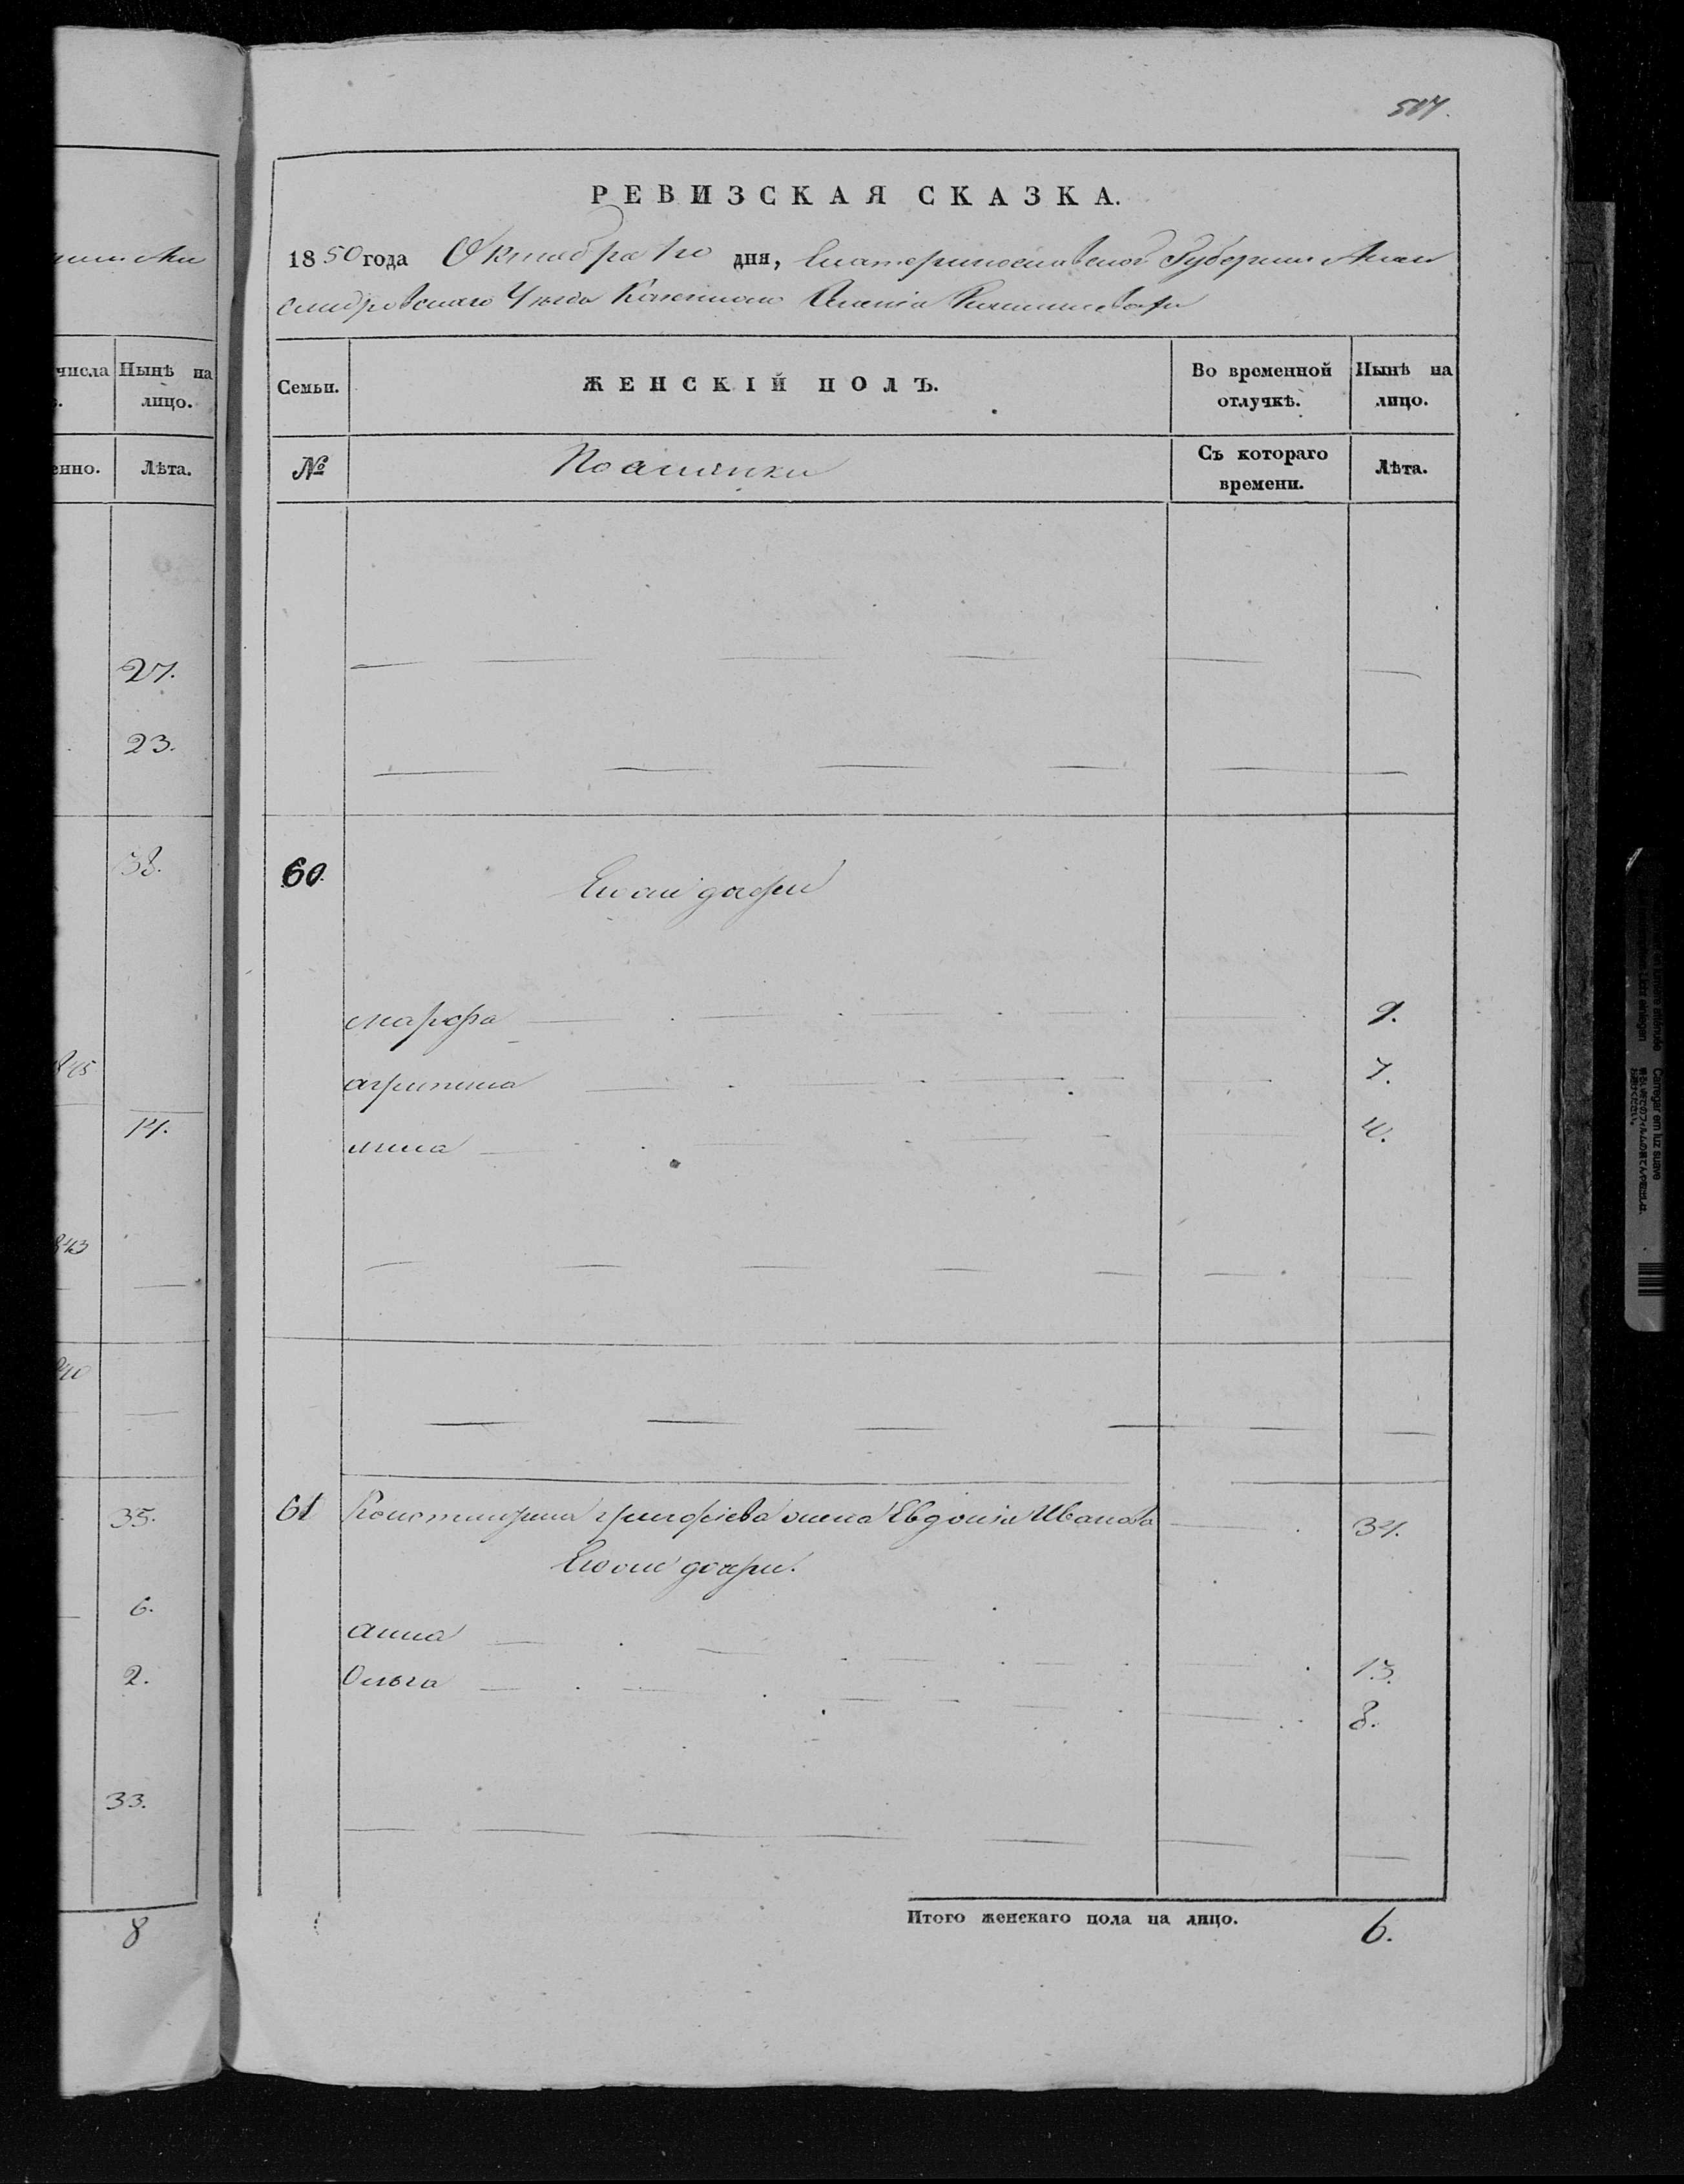 507.
РЕВИЗСКАЯ СКАЗКА.
1850 года Октября 10 дня, Екатеринославской Губернии Алек
сандровскаго Уѣзда Казеннаго Селенія
числа Нынѣ на
лицо.
Семьи. ЖЕНСКІЙ ПОЛЪ. Во временной Нынѣ на
отлучкѣ. лицо.
енно. Лѣта.
№ Поселянки Съ котораго Лѣта.
времени.
27.
23.
38.
60. Его дочери
марфа 9.
845
агрипина 7.
14.
4.
843
840
35.
61 Константина григорьева жена Евдокія Иванова 34.
Его дочери.
6.
анна 13.
2.
Ольга 8.
33.
8
Итого женскаго пола на лицо. 6.